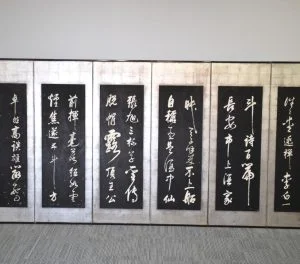 愛逃禪李白一
斗詩百篇
長安市上酒家
眠天子呼來不上船
自稱臣是酒中仙
張旭三杯草聖傳
脫帽露頂王公
前揮毫落紙如雲
煙焦遂五斗方
卓然高談雄辯驚